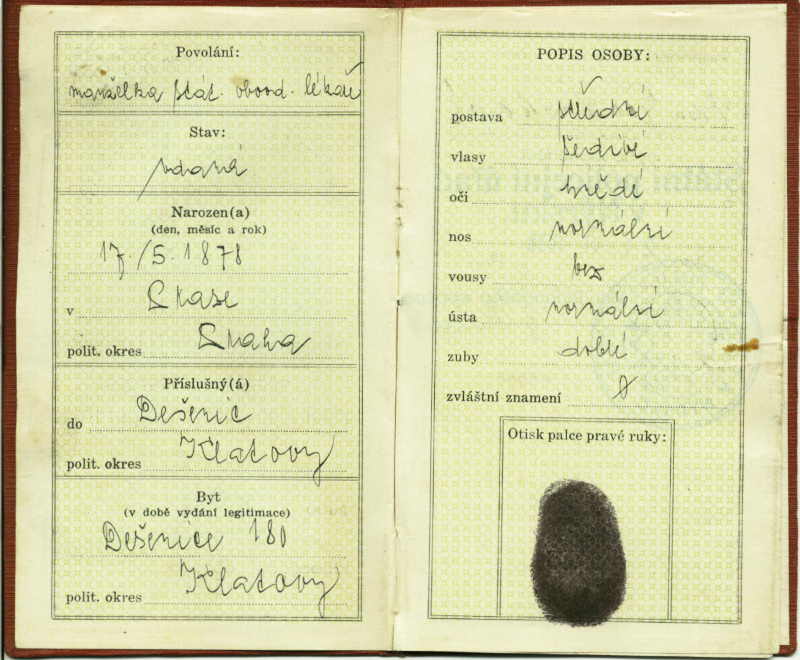 Povolání:
manželka stát. obvod. lékaře
Stav:
vdaná
Narozen(a)
(den, měsíc a rok)
17./5. 1878
v Praze
polit. okres Praha
Příslušný(á)
do Dešenic
polit. okres Klatovy
Byt
(v době vydání legitimace)
Dešenice 180
polit. okres Klatovy
POPIS OSOBY:
postava střední
vlasy šedivé
oči hnědé
nos normální
vousy bez
ústa normální
zuby dobré
zvláštní znamení
Otisk palce pravé ruky: